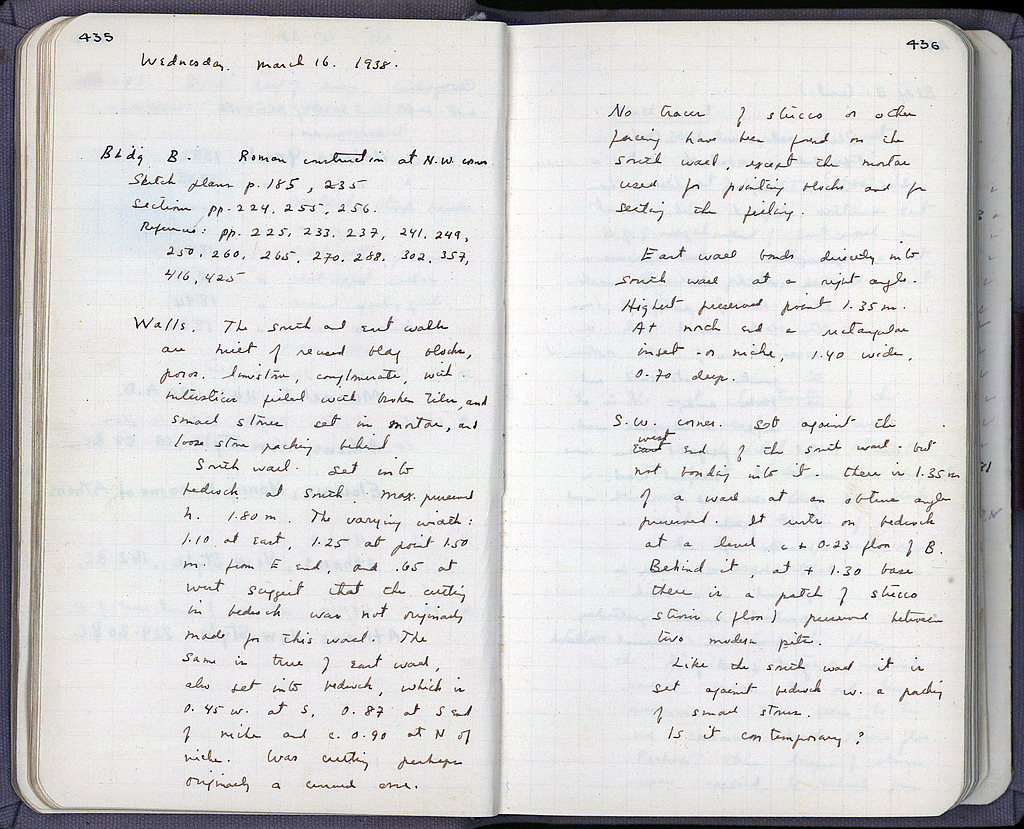 435
Wednesday. March 16. 1938.
Bldg B. Roman construction at N.W. corner
Sketch plans p. 185, 235
Section pp. 224, 255, 256.
References: pp. 225, 233, 237, 241, 249,
250, 260, 265, 270, 288, 302, 357,
416, 425
Walls. The south and east walls
are built of reused blocks,
poros, limestone, conglomerate, with
interstices filled with broken tiles, and
small stones set in mortar, and
loose stone packing behind
South wall. Set into
bedrock at south. Max. preserved
h. 1.80 m. The varying width:
1.10 at East, 1.25 at point 1.50
m. from E end, and .65 at
west suggest that the cutting
in bedrock was not originally
made for this wall. The
same is true of East wall,
also set into bedrock, which is
0.45 w. at S, 0.87 at S end
of niche and c. 0.90 at N of
niche. Was cutting perhaps
originally a curved one.
436
No traces of stucco or other
facing have been found on the
south wall, except the mortar
used for pointing blocks and for
setting the
East wall bonds directly into
south wall at a right angle.
Highest preserved point 1.35 m.
At north end a rectangular
inset - or niche, 1.40 wide,
0.70 deep.
S.W. corner. Set against the
west
East end of the south wall - but
not bonding into it. there is 1.35 m
of a wall at an obtuse angle
preserved. It rests on bedrock
at a level c + 0.23 floor of B.
Behind it, at + 1.30 base
there is a patch of stucco
(floor) preserved between
two modern pits.
Like the south wall it is
set against bedrock w. a packing
of small stones.
Is it contemporary?